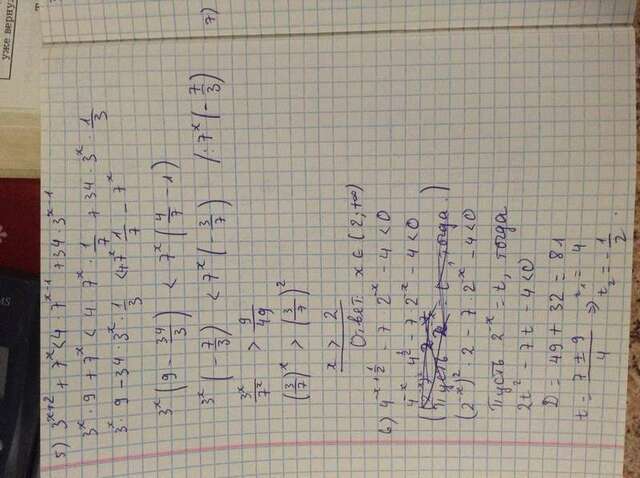 уже верну
5) 3^{x+2} + 7^x < 4 · 7^{x-1} + 34 · 3^{x-1}
3^x · 9 + 7^x < 4 7^x · 1/7 + 34 · 3^x · 1/3
3^x · 9 - 34 · 3^x · 1/3 < 47^x 1/7 - 7^x
3^x (9 - 34/3) < 7^x (4/7 - 1)
3^x (- 7/3) < 7^x (- 3/7) /: 7^x (- 7/3)
7)
3^x/7^x > 9/49
(3/7)^x > (3/7)^2
x > 2
Ответ x ∈ (2; +∞)
6) 4^{-x + 1/2} - 7 2^{-x} - 4 < 0
4^{-x} 4^{1/2} - 7 · 2^{-x} - 4 < 0
(2^{-x})^2 · 2 - 7 · 2^{-x} - 4 < 0
Пусть 2^{-x} = t, тогда
2t^2 - 7t - 4 < 0
D = 49 + 32 = 81
t = (7 ± 9)/4 ⇒ t_1 = 4
t_2 = - 1/2